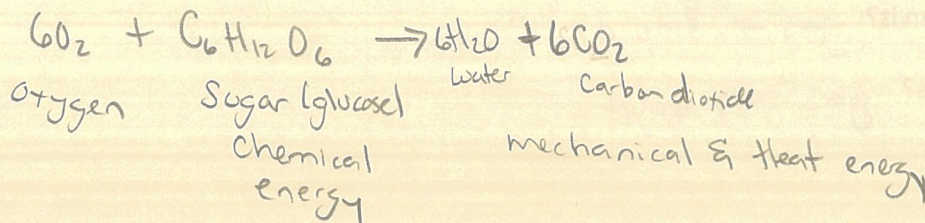 6O₂ + C₆H₁₂O₆ → 6H₂O + 6CO₂
Oxygen Sugar (glucose) water Carbon dioxide
Chemical energy mechanical & Heat energy